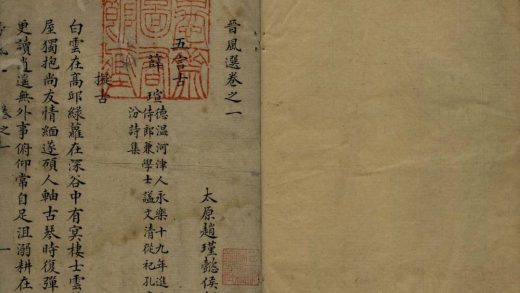 晉風選卷之一
太原趙瑾懿侯
五言古
薛瑄
德温河津人永樂十九年進
侍郎兼學士謚文清從祀孔
汾詩集
擬古
白雲在高邱綠蘿在深谷中有冥棲士雲
屋獨抱尚友情緬邈碩人軸古琴時復彈
更讀逍遙無外事俯仰常自足沮溺耕在
卷之一
一